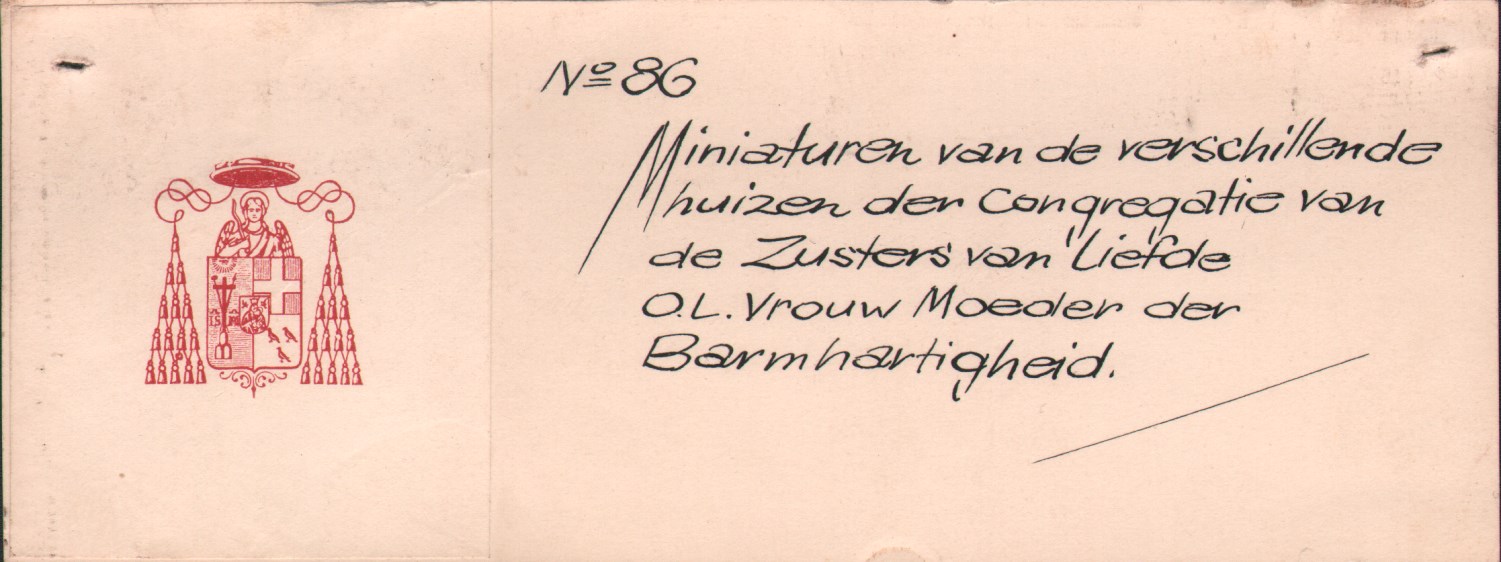 Nº 86
Miniaturen van de verschillende
huizen der Congregatie van
de Zusters van Liefde
O.L. Vrouw Moeder der
Barmhartigheid.